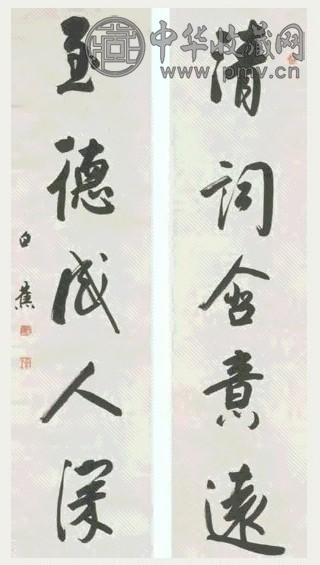 中华收藏网
www.pmv.cn
清詞含意遠
至德感人深
白蕉